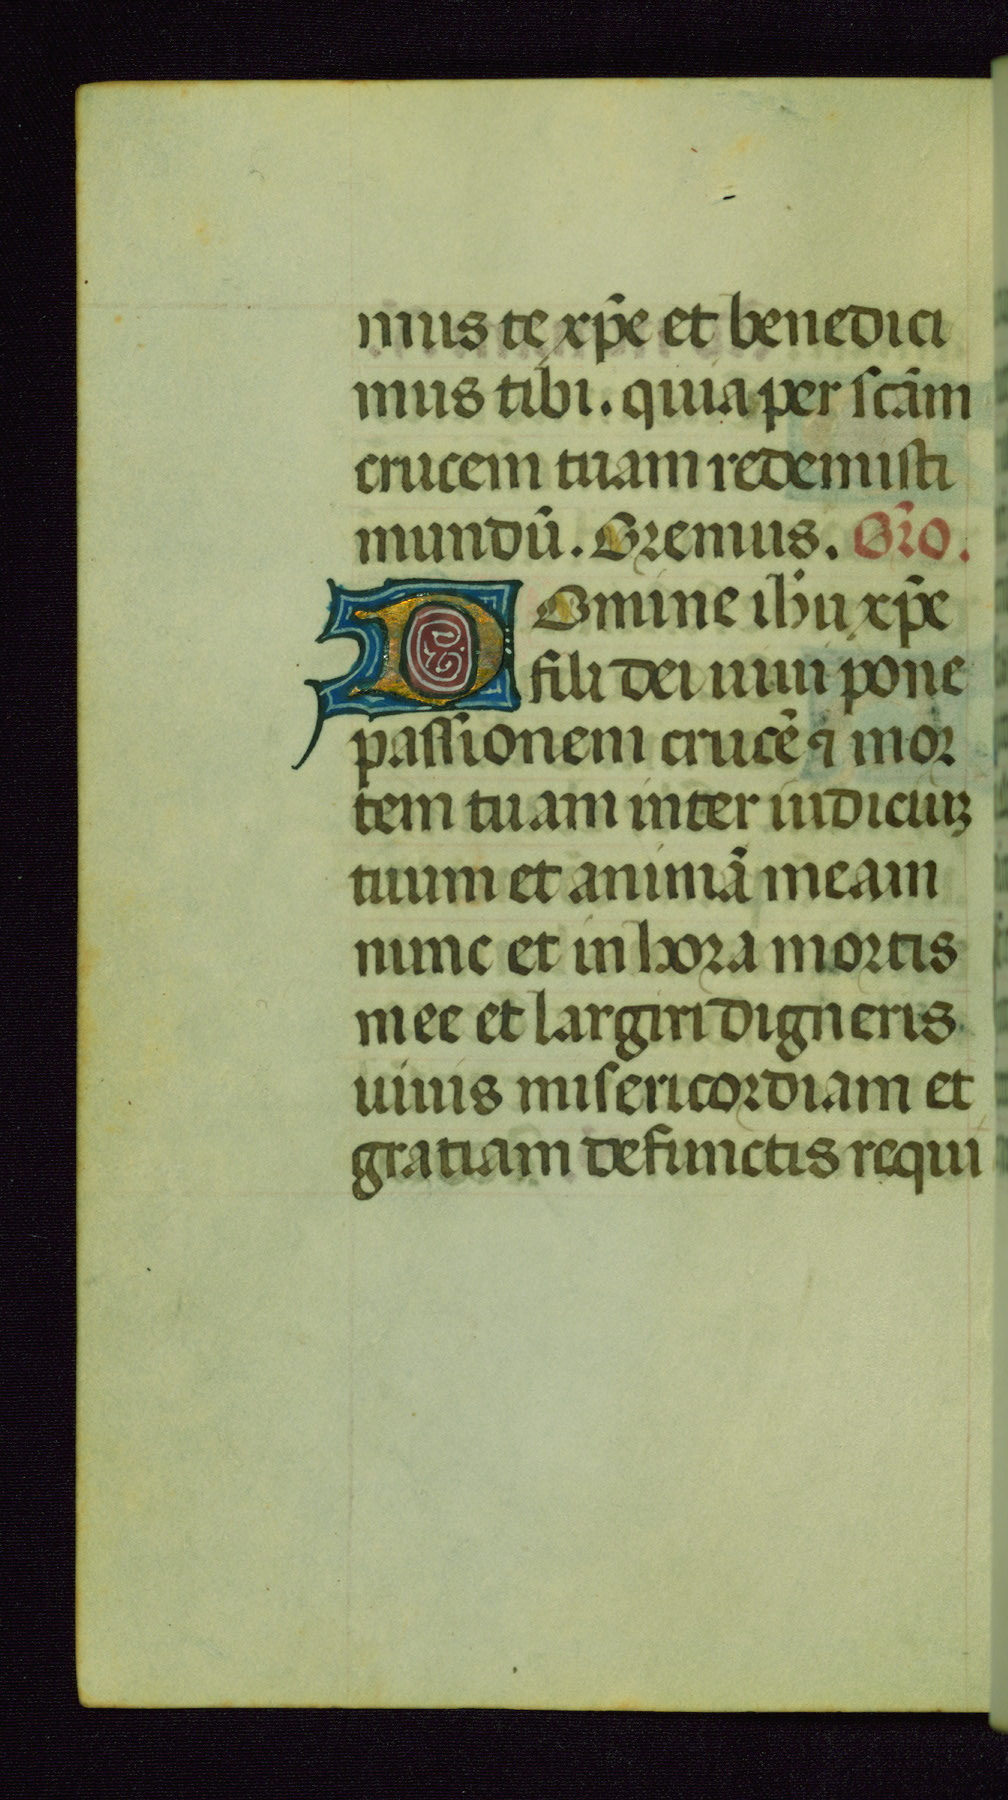 mus te xp̄e et benedici
mus tibi. quia per scām
crucem tuam redemisti
mundū. Oremus. Or̄o.
DOmine ih̄u xp̄e
fili dei uiui pone
passionem crucē ⁊ mor
tem tuam inter iudiciuꝫ
tuum et animā meam
nunc et in hora mortis
mee et largiri digneris
uiuis misericordiam et
gratiam defunctis requi